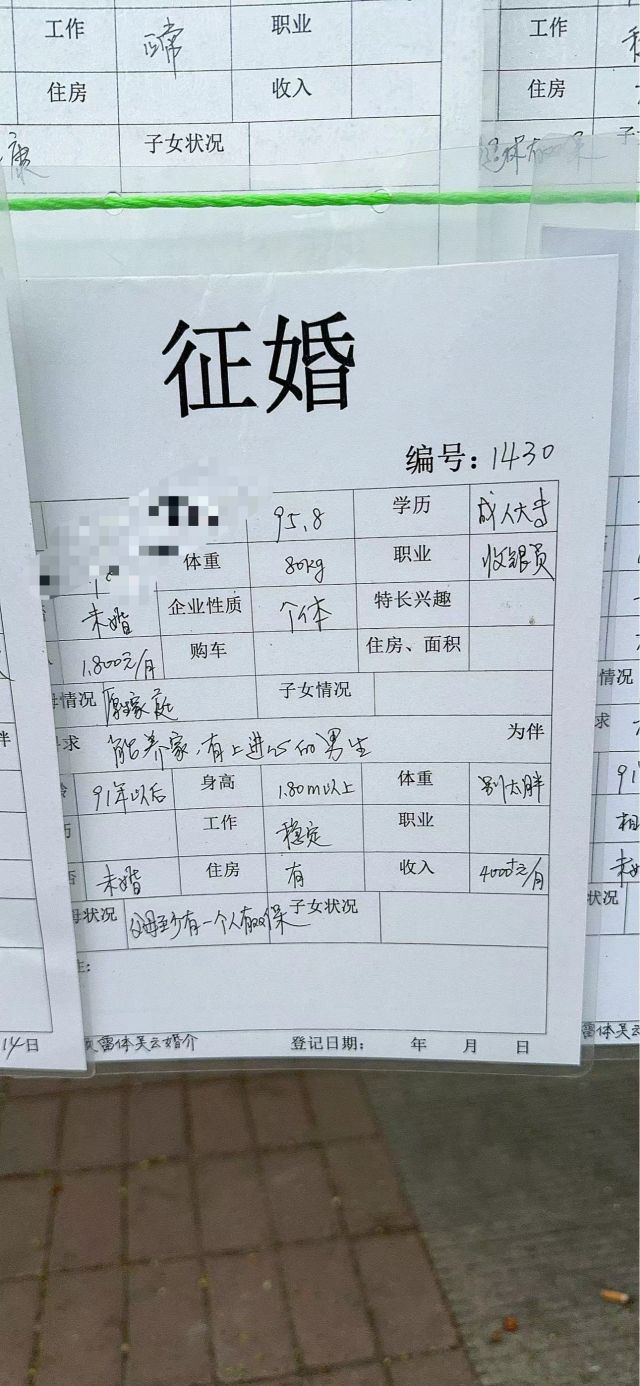 工作 正常 职业
住房 收入
康 子女状况
征婚
编号：1430
95.8 学历 成人大专
体重 80kg 职业 收银员
未婚 企业性质 个体 特长兴趣
1,800元/月 购车 住房、面积
母情况 原家庭 子女情况
求 能养家，有上进心的男生 为伴
91年以后 身高 1.80m以上 体重 别太胖
工作 稳定 职业
未婚 住房 有 收入 4000+元/月
母状况 父母至少有一个人有双保 子女状况
注：
吴云婚介 登记日期： 年 月 日
14日